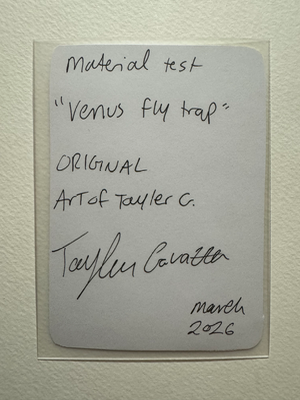 Material test
"Venus fly trap"
ORIGINAL
Art of Tayler G.
Tayler Gavatta
March
2026